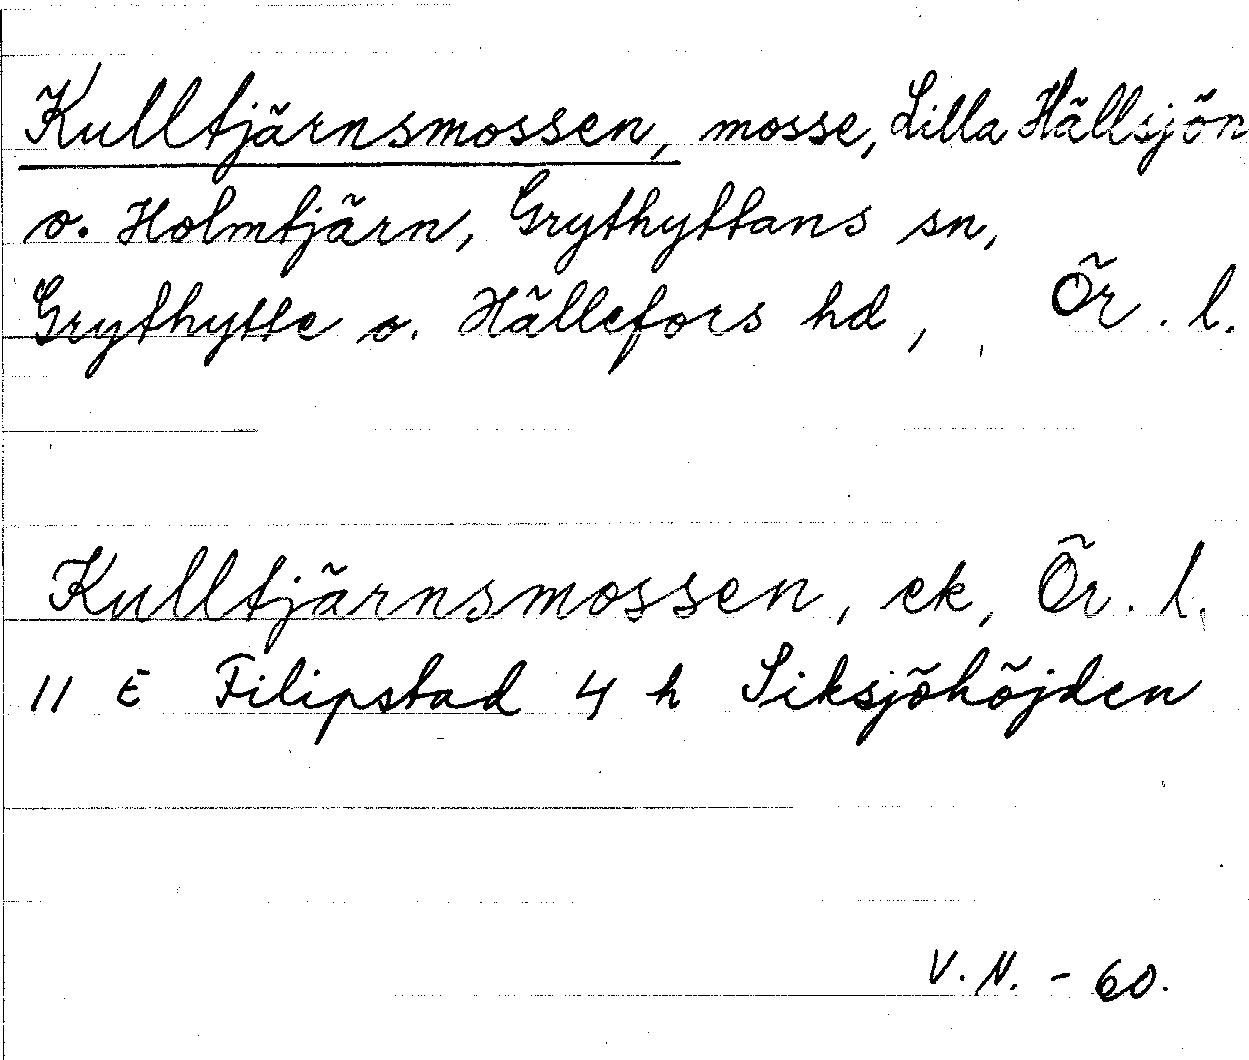 Kulltjärnsmossen, mosse, Lilla Hällsjön
o. Holmtjärn, Grythyttans sn,
Grythytte o. Hällefors hd, Ör. l.
Kulltjärnsmossen, ek, Ör. l.
11 E Filipstad 4 h Siksjöhöjden
V. N. - 60.